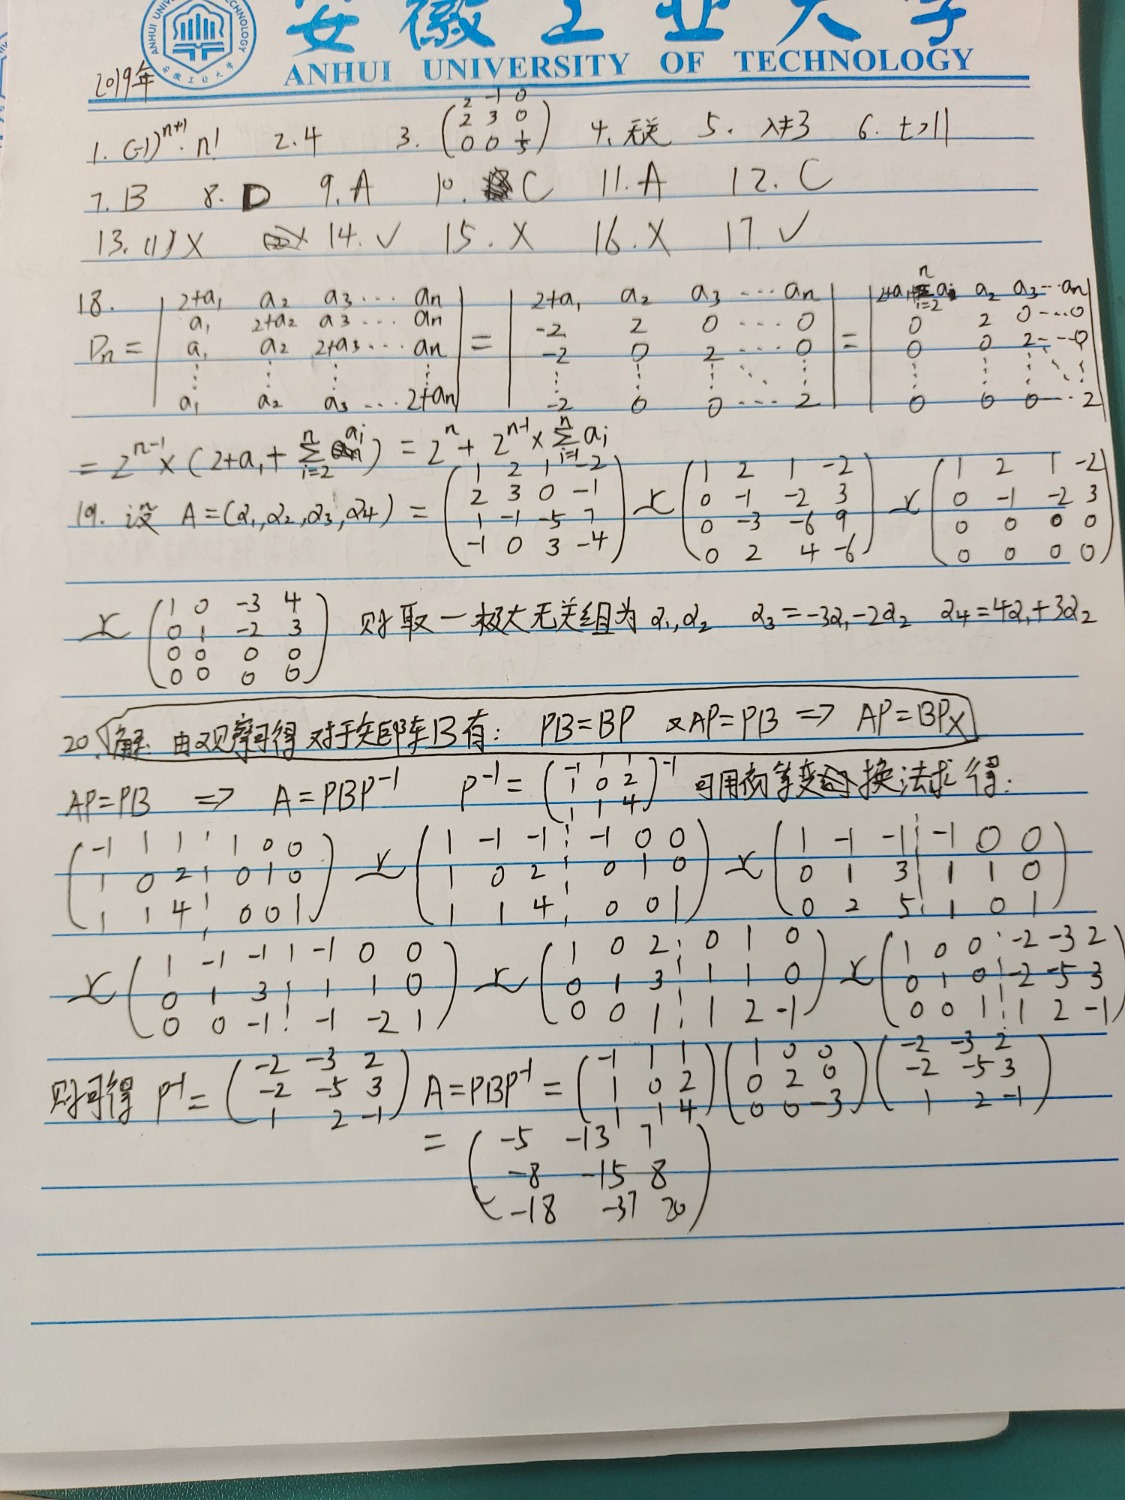 安徽工业大学
ANHUI UNIVERSITY OF TECHNOLOGY
2019年
1. (-1)^{n+1}·n! 2. 4 3. (2 -1 0; 2 3 0; 0 0 5) 4. 无关 5. λ≠3 6. t>11
7. B 8. D 9. A 10. C 11. A 12. C
13. (1) X 14. ✓ 15. X 16. X 17. ✓
18. D_n = |2+a₁ a₂ a₃ ⋯ a_n; a₁ 2+a₂ a₃ ⋯ a_n; a₁ a₂ 2+a₃ ⋯ a_n; ⋮ ⋮ ⋮ ⋮; a₁ a₂ a₃ ⋯ 2+a_n| = |2+a₁ a₂ a₃ ⋯ a_n; -2 2 0 ⋯ 0; -2 0 2 ⋯ 0; ⋮ ⋮ ⋮ ⋱ ⋮; -2 0 0 ⋯ 2| = |2+a₁+∑_{i=2}^n a_i a₂ a₃ ⋯ a_n; 0 2 0 ⋯ 0; 0 0 2 ⋯ 0; ⋮ ⋮ ⋮ ⋱ ⋮; 0 0 0 ⋯ 2|
= 2^{n-1}×(2+a₁+∑_{i=2}^n a_i) = 2^n + 2^{n-1}×∑_{i=1}^n a_i
19. 设 A=(α₁,α₂,α₃,α₄) = (1 2 1 -2; 2 3 0 -1; 1 -1 -5 7; -1 0 3 -4) ~ (1 2 1 -2; 0 -1 -2 3; 0 -3 -6 9; 0 2 4 -6) ~ (1 2 1 -2; 0 -1 -2 3; 0 0 0 0; 0 0 0 0)
~ (1 0 -3 4; 0 1 -2 3; 0 0 0 0; 0 0 0 0) 则取一极大无关组为 α₁,α₂ α₃=-3α₁-2α₂ α₄=4α₁+3α₂
20. 解: 由观察可得 对于矩阵B有: PB=BP 又AP=PB ⇒ AP=BP X
AP=PB ⇒ A=PBP⁻¹ P⁻¹ = (-1 1 1; 1 0 2; 1 1 4)⁻¹ 可用初等变换法求得:
(-1 1 1 ¦ 1 0 0; 1 0 2 ¦ 0 1 0; 1 1 4 ¦ 0 0 1) ~ (1 -1 -1 ¦ -1 0 0; 1 0 2 ¦ 0 1 0; 1 1 4 ¦ 0 0 1) ~ (1 -1 -1 ¦ -1 0 0; 0 1 3 ¦ 1 1 0; 0 2 5 ¦ 1 0 1)
~ (1 -1 -1 ¦ -1 0 0; 0 1 3 ¦ 1 1 0; 0 0 -1 ¦ -1 -2 1) ~ (1 0 2 ¦ 0 1 0; 0 1 3 ¦ 1 1 0; 0 0 1 ¦ 1 2 -1) ~ (1 0 0 ¦ -2 -3 2; 0 1 0 ¦ -2 -5 3; 0 0 1 ¦ 1 2 -1)
则可得 P⁻¹ = (-2 -3 2; -2 -5 3; 1 2 -1) A=PBP⁻¹ = (-1 1 1; 1 0 2; 1 1 4)(1 0 0; 0 2 0; 0 0 -3)(-2 -3 2; -2 -5 3; 1 2 -1)
= (-5 -13 7; -8 -15 8; -18 -37 20)